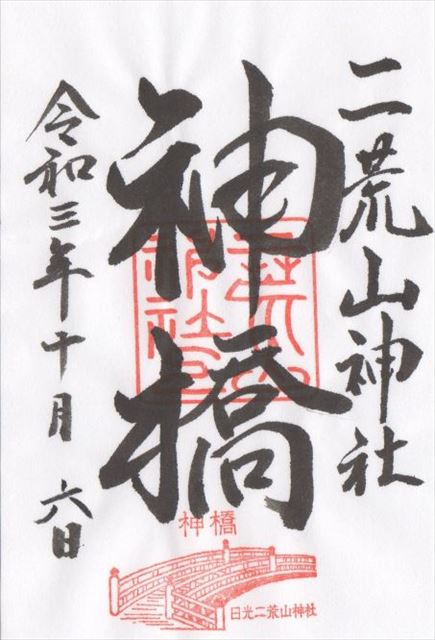 二荒山神社
神橋
令和三年十月六日
二荒山神社
神橋
日光二荒山神社